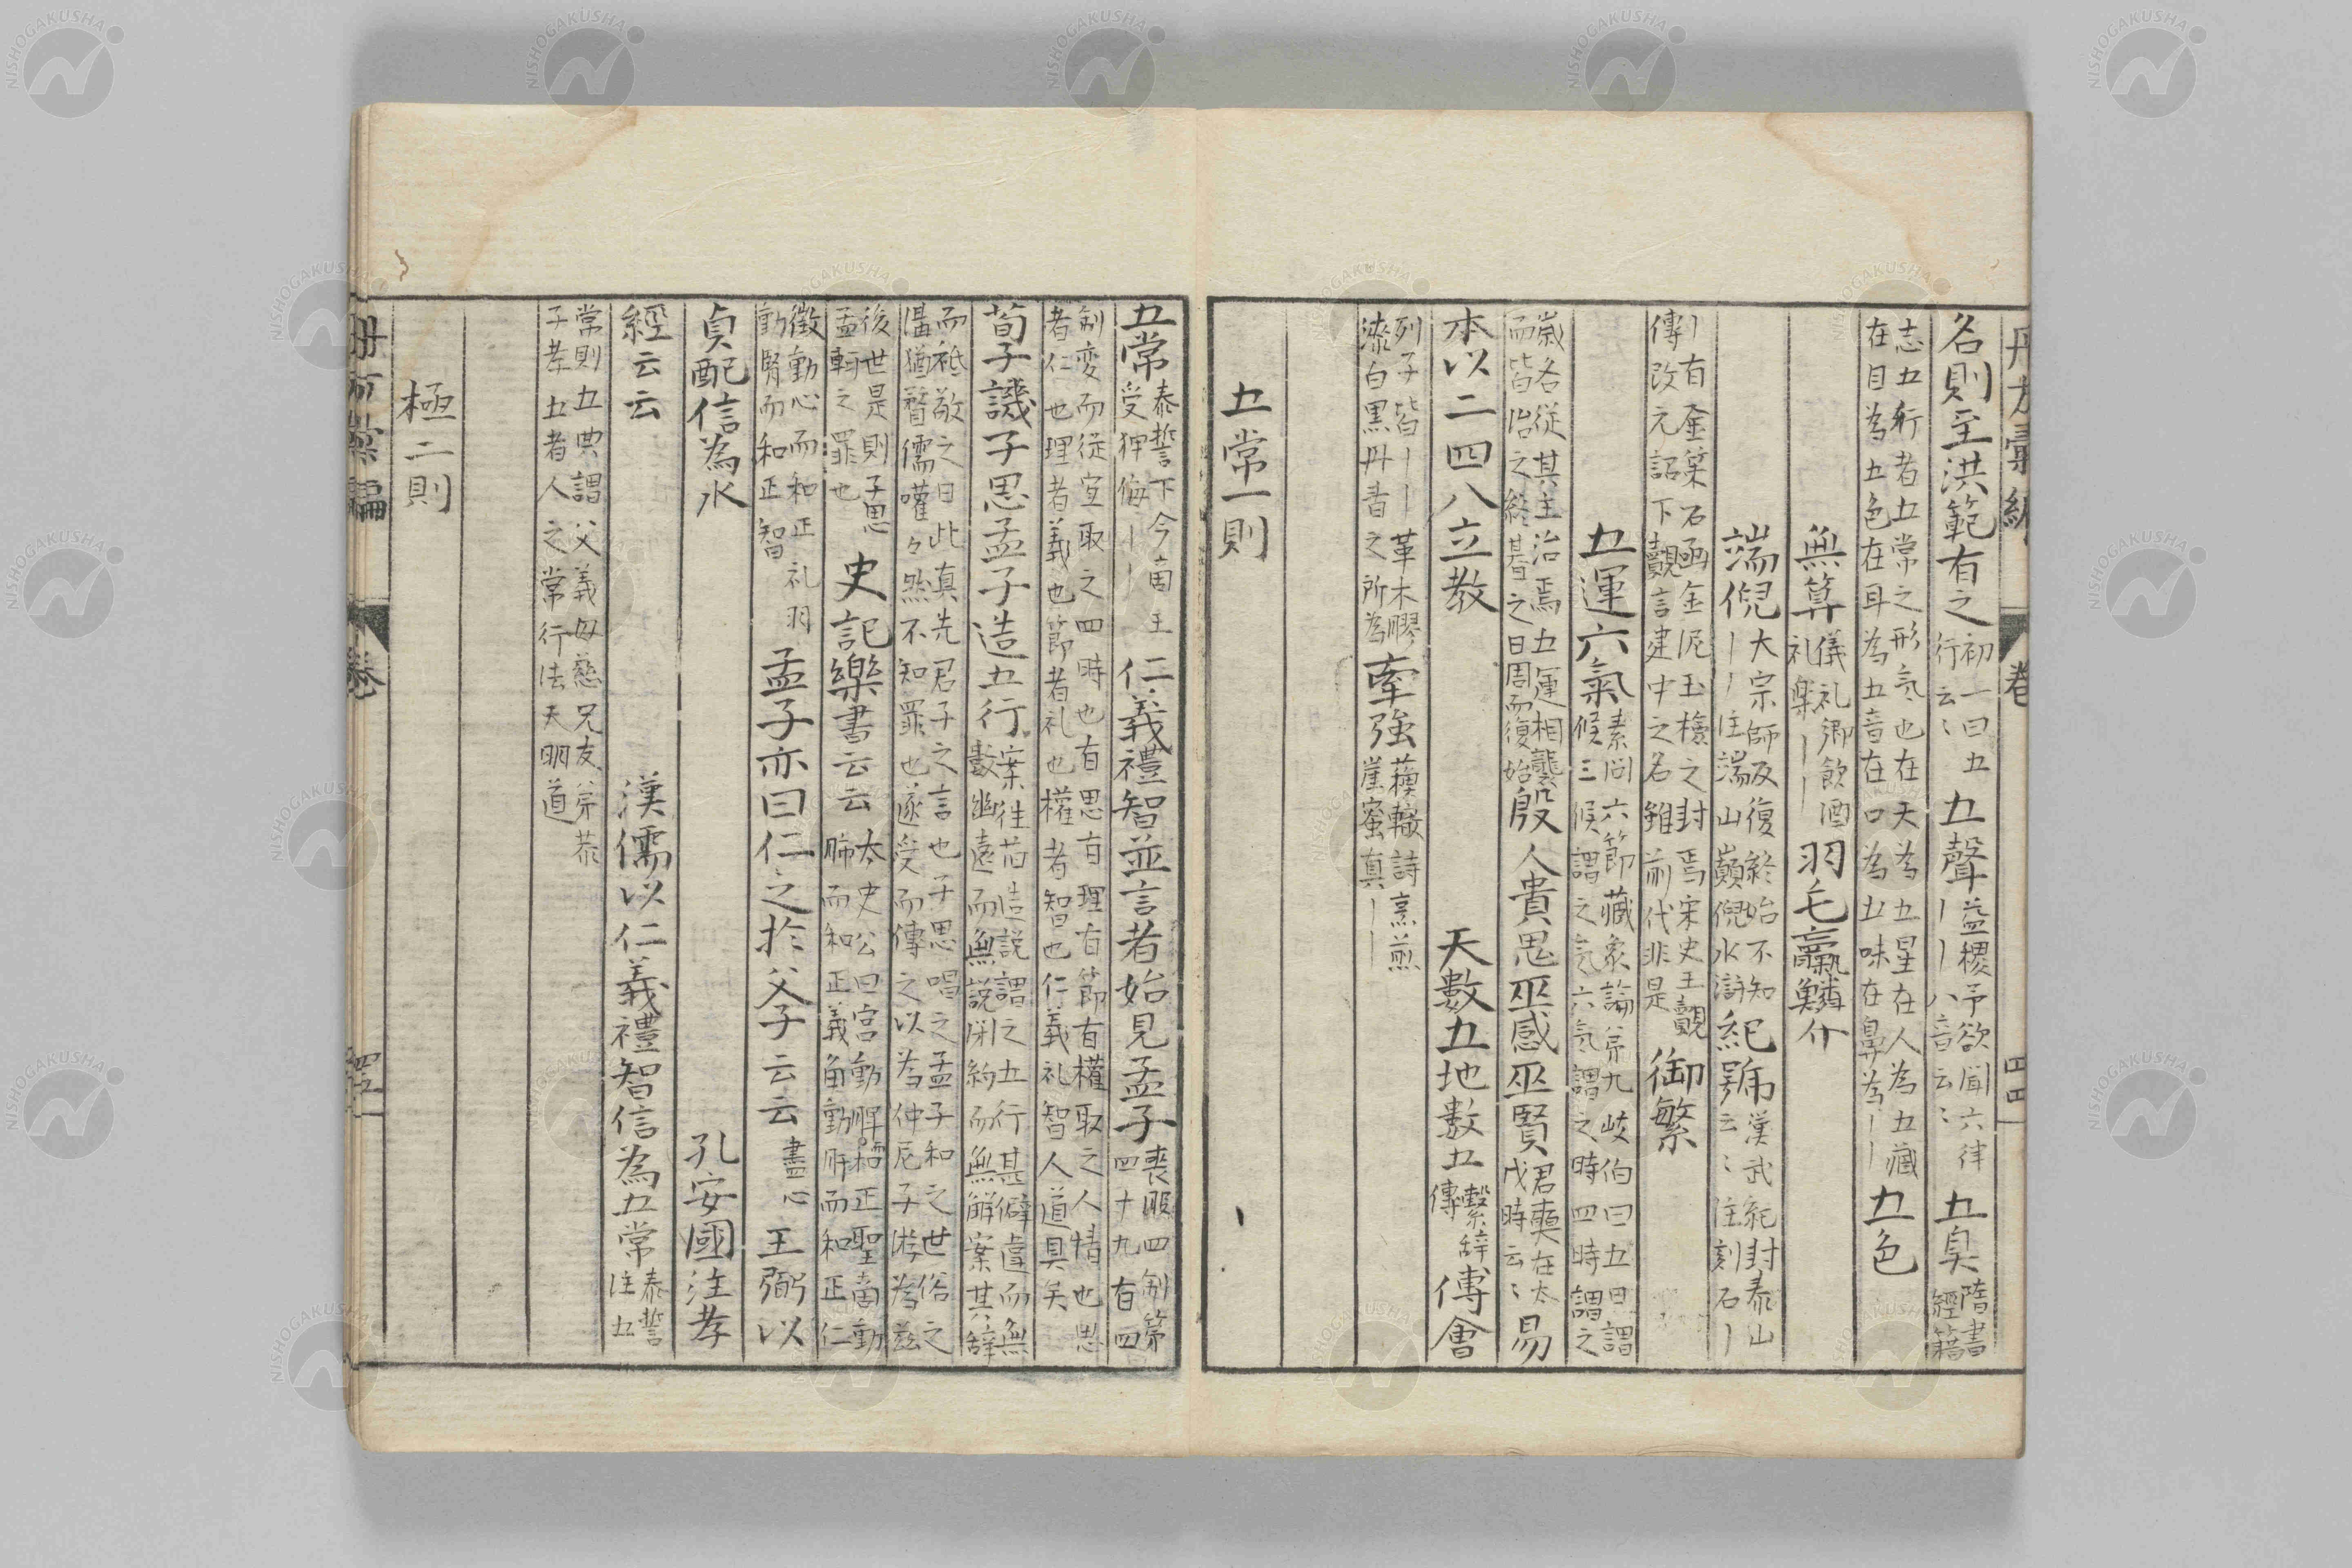 名則至洪範有之 初一曰五行云〻 五聲 益稷予欲聞六律丨丨八音云〻 五臭 隋書經籍
志五行者五常之形気也在天為五星在人為五藏
在目為五色在耳為五音在口為五味在鼻為丨丨 五色
無算 儀礼郷飲酒礼楽丨丨 羽毛鱗介
端倪 大宗師反復終始不知丨丨注端山巓倪水滸 紀號 漢武紀封泰山云〻注刻石丨
丨有金策石函金泥玉檢之封焉宋史王覿
傳改元詔下覿言建中之名雖前代非是 御繁
五運六氣 素問六節藏象論第九岐伯曰五日謂之候三候謂之気六気謂之時四時謂之
歳各従其主治焉五運相襲
而皆治之終朞之日周而復始 殷人貴思巫感巫賢 君奭在太戊時云〻 易
本以二四八立教 天數五地數五 繫辞傳 傅會
列子皆丨丨革木膠
漆白黒丹青之所為 牽強 蘓轍詩烹煎崖蜜真丨丨
五常一則
五常 泰誓下今商王受狎侮丨丨 仁義禮智並言者始見孟子 喪服四制第四十九有四
制変而従宜取之四時也有恩有理有節有權取之人情也恩
者仁也理者義也節者礼也權者智也仁義礼智人道具矣
荀子譏子思孟子造五行 案往旧造説謂之五行甚僻違而無數幽遠而無説閉約而無解案其辞
而祗敬之曰此真先君子之言也子思唱之孟子和之世俗之
溝猶瞀儒嚾〻然不知罪也遂受而傳之以為仲尼子游為茲
後世是則子思
孟軻之罪也 史記樂書云云 太史公曰宮動脾而和正聖商動肺而和正義角動肝而和正仁
徴動心而和正礼羽
動腎而和正智 孟子亦曰仁之於父子云云 盡心 王弼以
貞配信為水 孔安國注孝
經云云 漢儒以仁義禮智信為五常 泰誓注五
常則五典謂父義母慈兄友弟恭
子孝五者人之常行法天明道
極二則